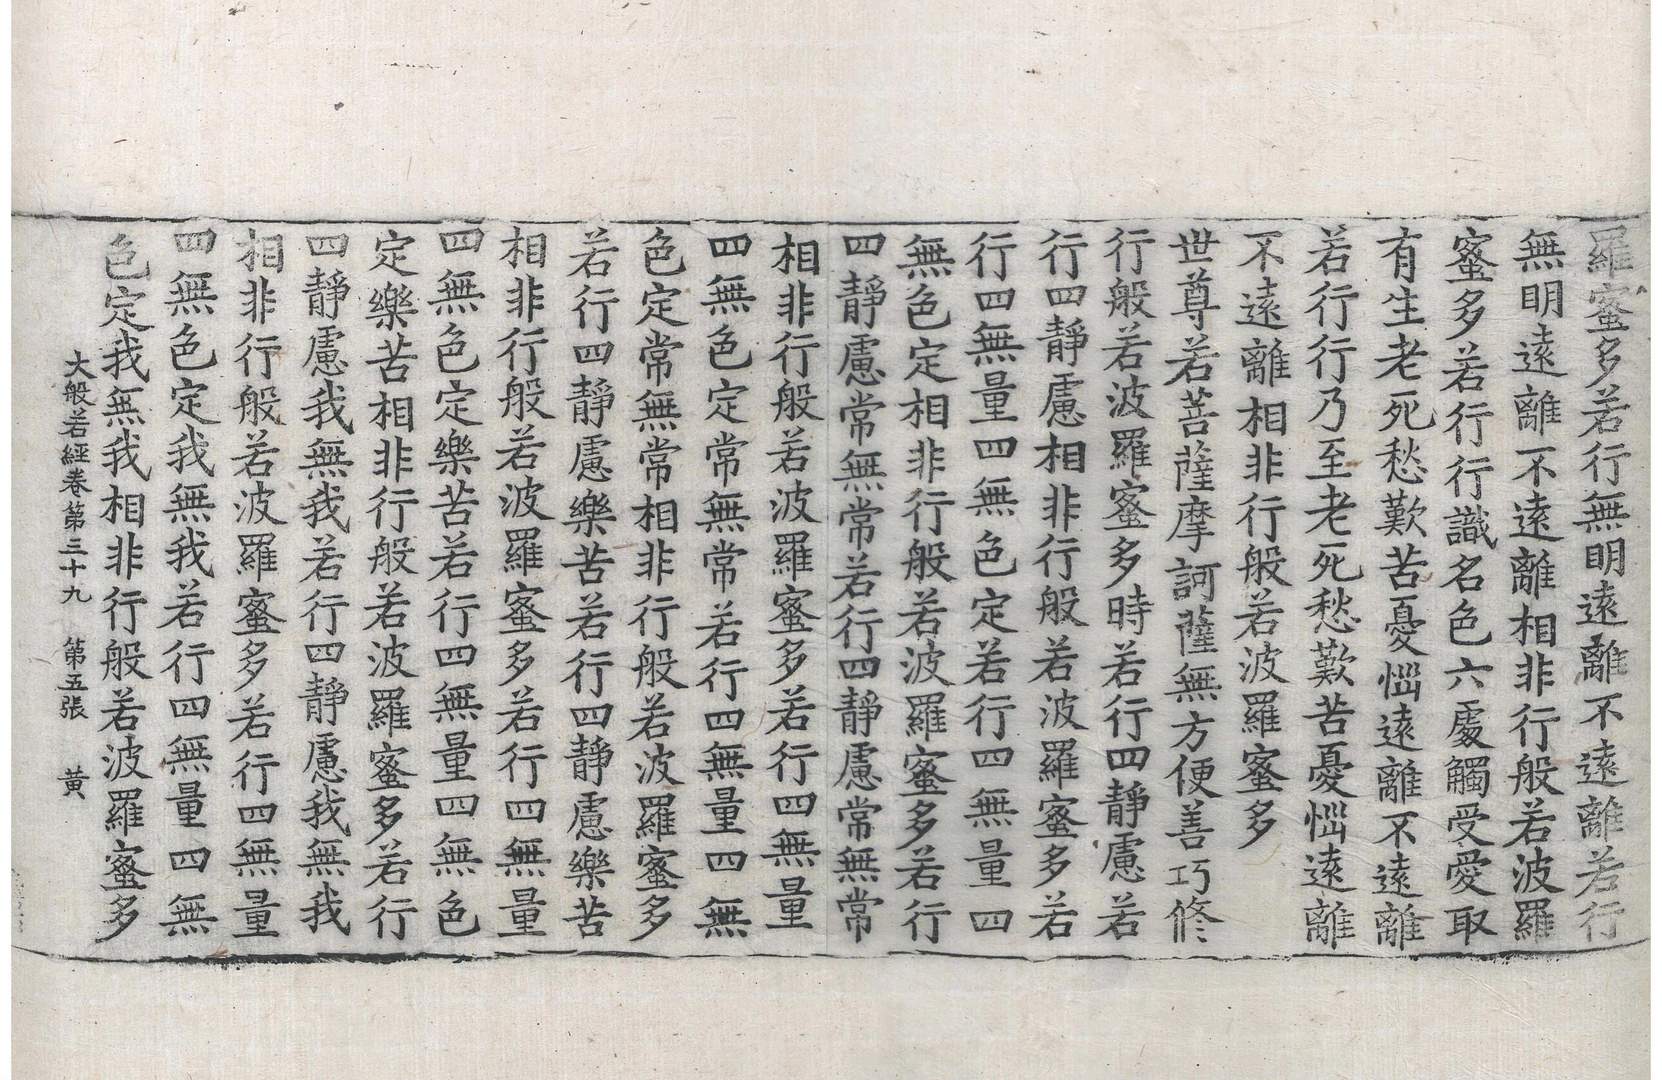 羅蜜多若行無明遠離不遠離若行
無明遠離不遠離相非行般若波羅
蜜多若行行識名色六處觸受愛取
有生老死愁歎苦憂惱遠離不遠離
若行行乃至老死愁歎苦憂惱遠離
不遠離相非行般若波羅蜜多
世尊若菩薩摩訶薩無方便善巧修
行般若波羅蜜多時若行四靜慮若
行四靜慮相非行般若波羅蜜多若
行四無量四無色定若行四無量四
無色定相非行般若波羅蜜多若行
四靜慮常無常若行四靜慮常無常
相非行般若波羅蜜多若行四無量
四無色定常無常若行四無量四無
色定常無常相非行般若波羅蜜多
若行四靜慮樂苦若行四靜慮樂苦
相非行般若波羅蜜多若行四無量
四無色定樂苦若行四無量四無色
定樂苦相非行般若波羅蜜多若行
四靜慮我無我若行四靜慮我無我
相非行般若波羅蜜多若行四無量
四無色定我無我若行四無量四無
色定我無我相非行般若波羅蜜多
大般若經卷第三十九 第五張 黃